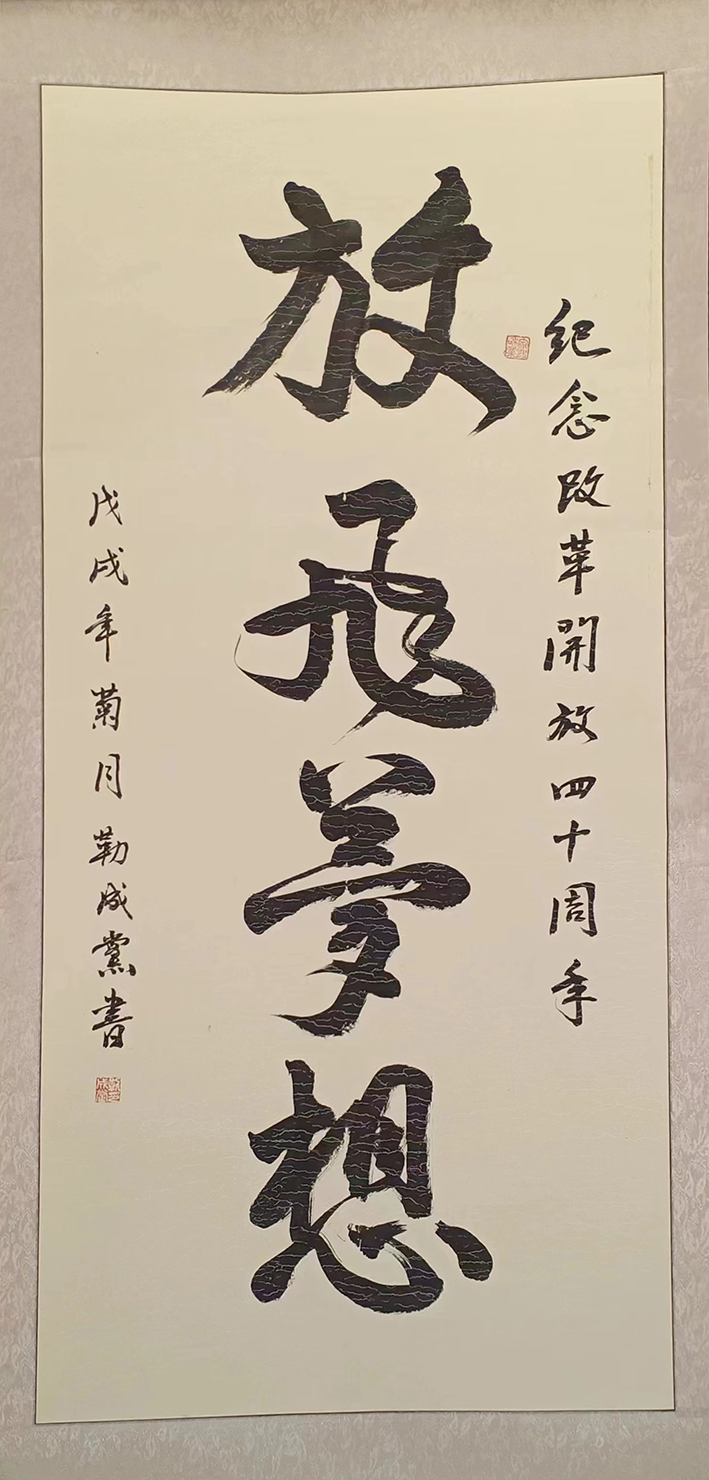 紀念改革開放四十周年
放飛夢想
戊戌年菊月勒成黨書